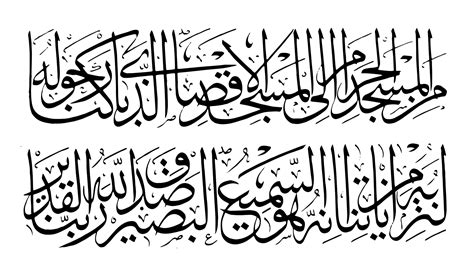 من المسجد الحرام إلى المسجد الأقصا الذي باركنا حوله
لنريه من آياتنا إنه هو السميع البصير صدق الله ربنا القدير